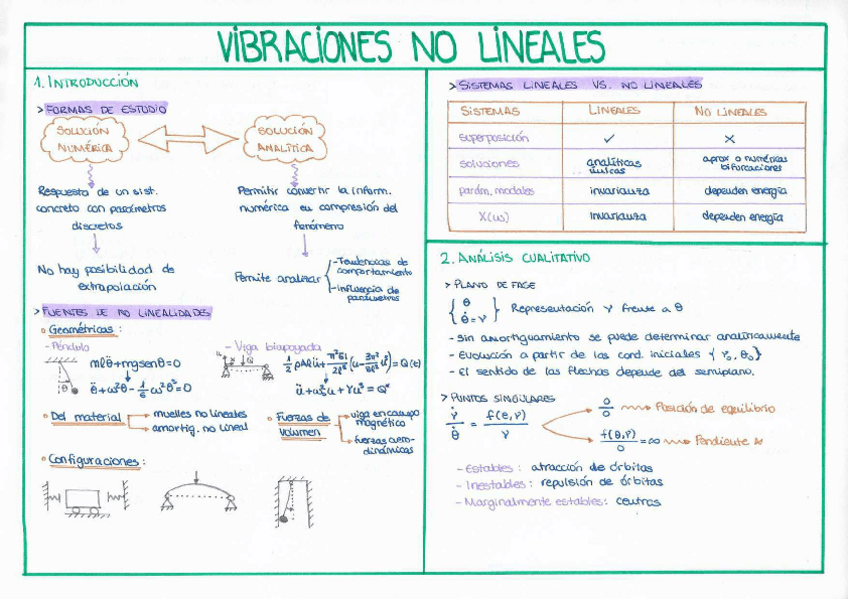 VIBRACIONES NO LINEALES
1. INTRODUCCIÓN
> FORMAS DE ESTUDIO
SOLUCIÓN
NUMÉRICA
SOLUCIÓN
ANALÍTICA
Respuesta de un sist.
concreto con parámetros
discretos
No hay posibilidad de
extrapolación
Permitir convertir la inform.
numérica en compresión del
fenómeno
Permite analizar
- Tendencias de
comportamiento
- influencia de
parámetros
> FUENTES DE NO LINEALIDADES
Geométricas:
- Péndulo
mlθ̈+mgsenθ=0
θ̈+ω²θ-1/6 ω²θ³=0
- Viga biapoyada
ü+ω₀²u+γu³=Q*
Del material
muelles no lineales
amortig. no lineal
Fuerzas de
volumen
viga en campo
magnético
fuerzas aero-
dinámicas
Configuraciones:
> SISTEMAS LINEALES VS. NO LINEALES
SISTEMAS LINEALES NO LINEALES
superposición ✓ ✗
soluciones analíticas únicas aprox o numéricas bifurcaciones
parám. modales invarianza dependen energía
X(ω) invarianza dependen energía
2. ANÁLISIS CUALITATIVO
> PLANO DE FASE
{ θ
θ̇=γ } Representación γ frente a θ
- Sin amortiguamiento se puede determinar analíticamente
- Evolución a partir de las cond. iniciales {γ₀, θ₀}
- El sentido de las flechas depende del semiplano.
> PUNTOS SINGULARES
γ̇/θ̇ = f(θ,γ)/γ
0/0 Posición de equilibrio
f(θ,γ)/0 = ∞ Pendiente ∞
- Estables: atracción de órbitas
- Inestables: repulsión de órbitas
- Marginalmente estables: centros